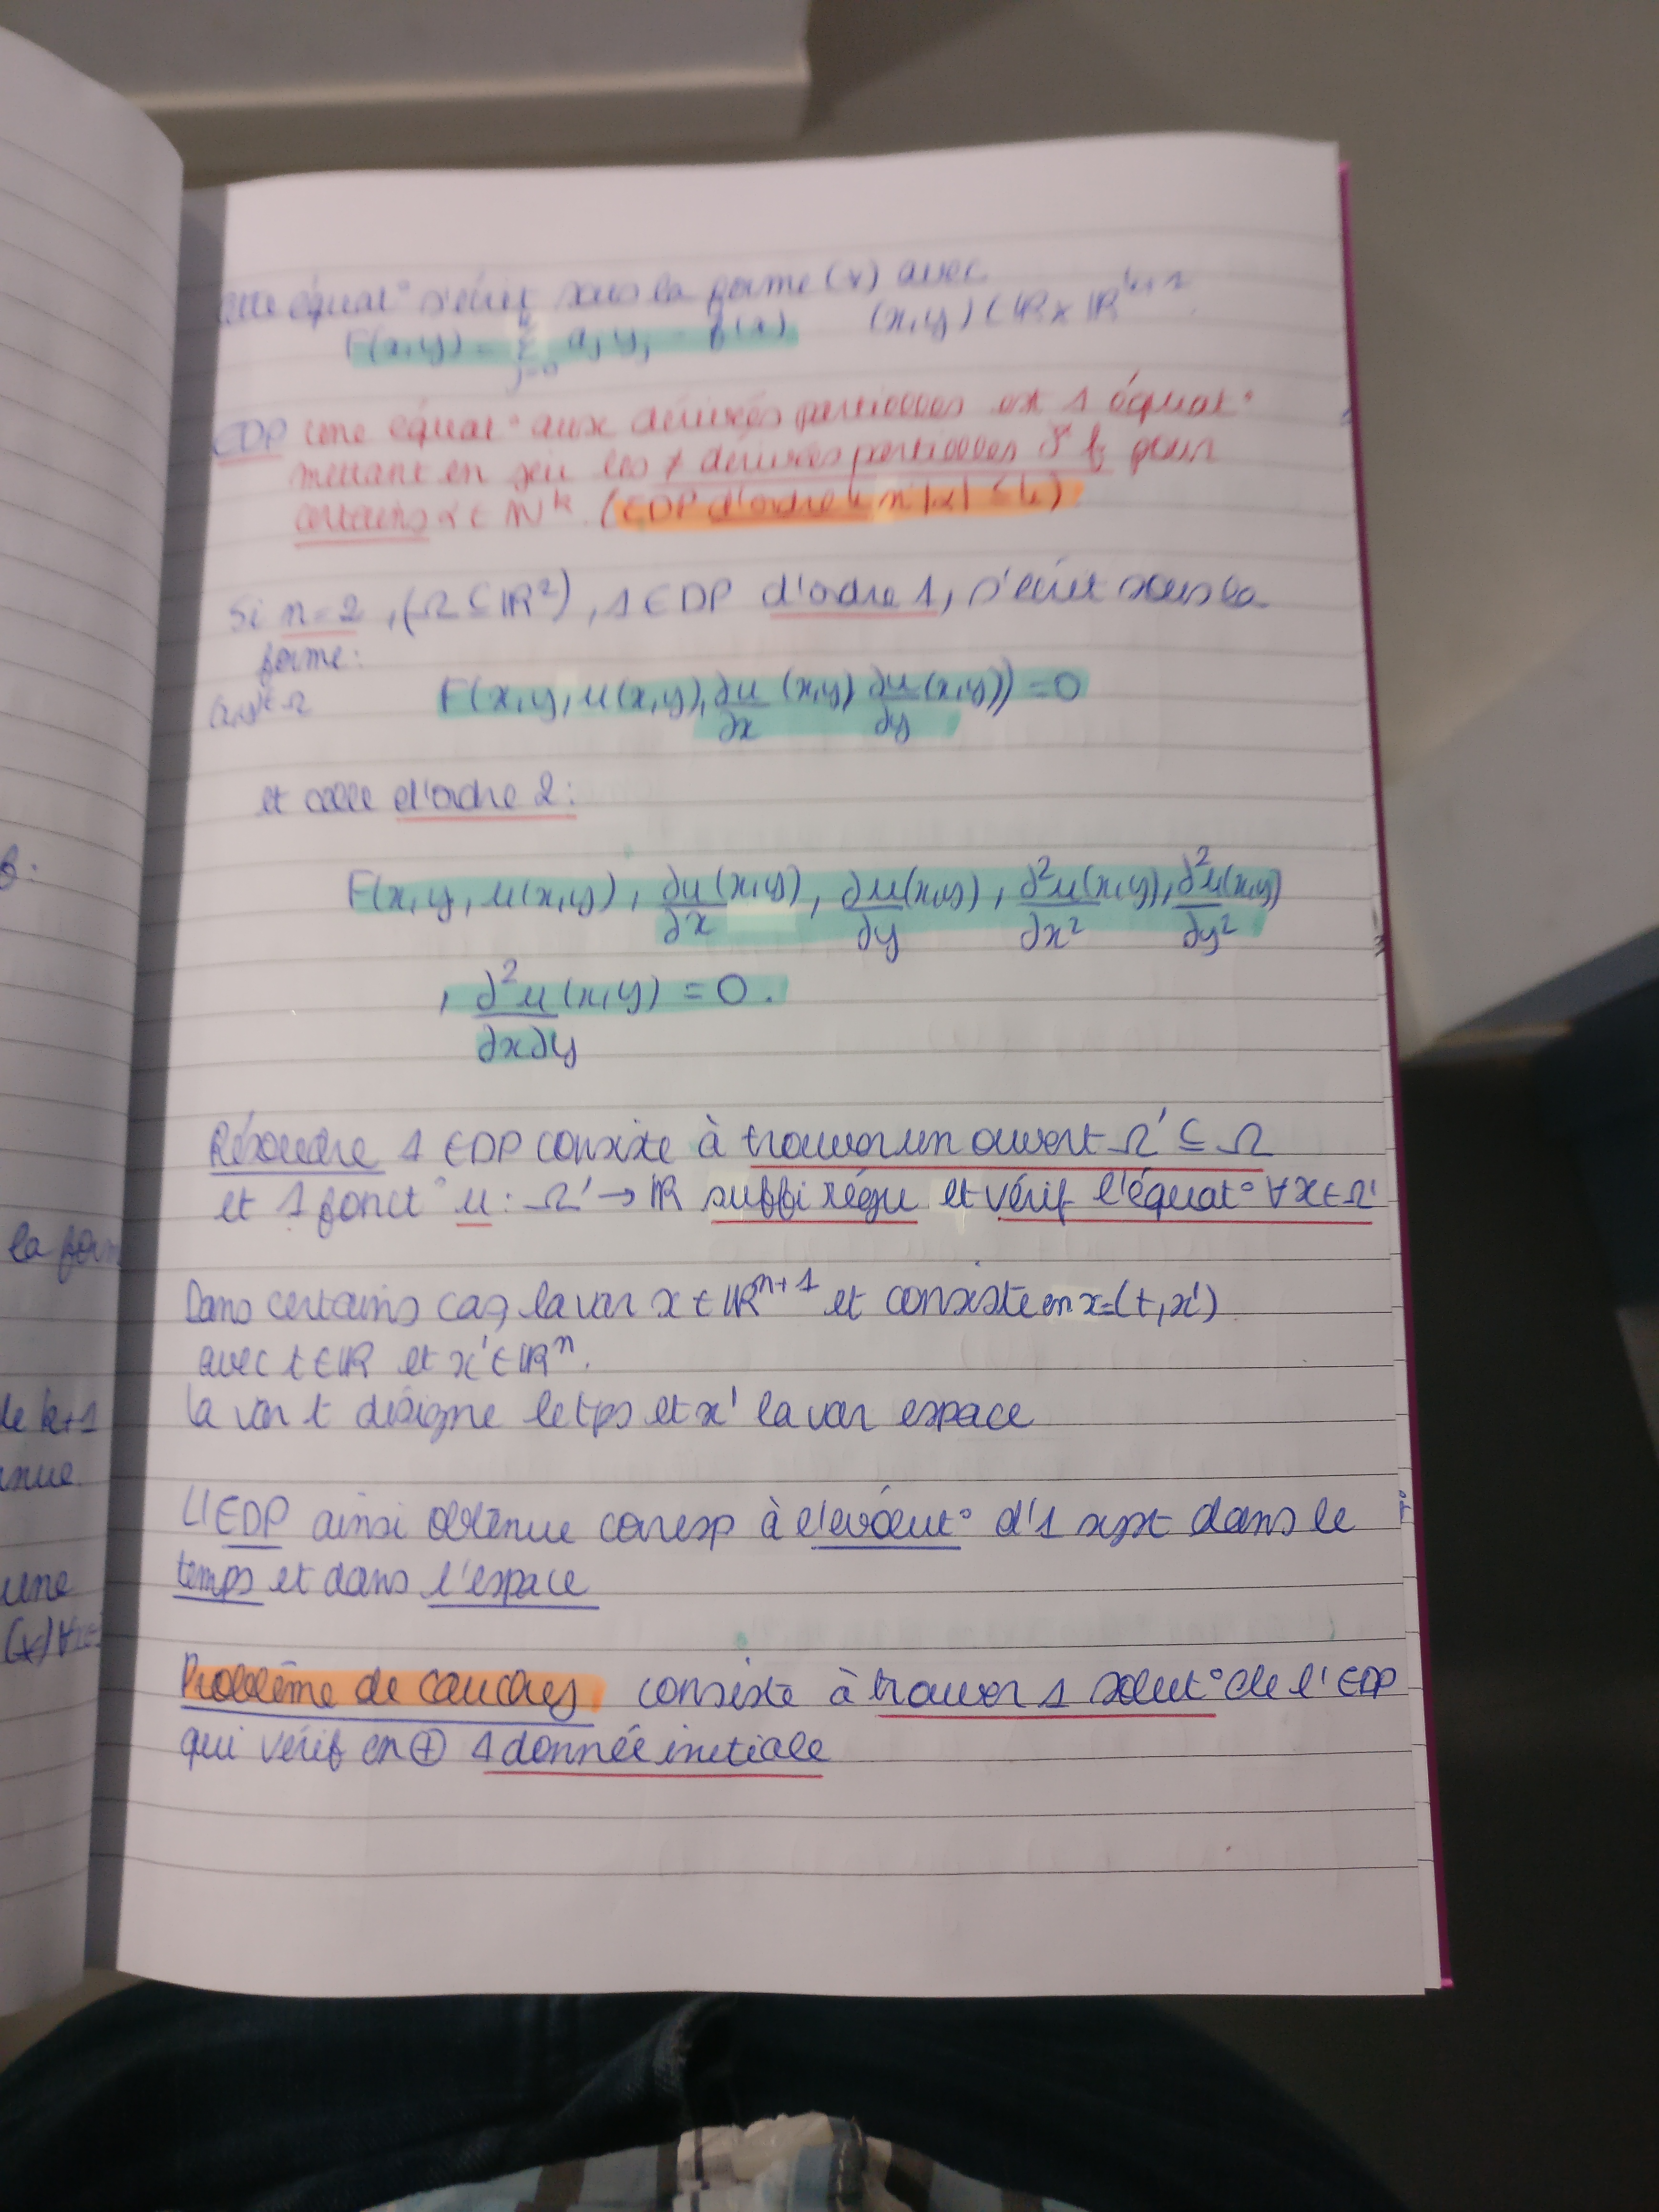 équat° s'écrit sous la forme (*) avec
F(x,y) = Σ_{j=0}^{k} a_j y_j - f(x) (x,y) ∈ ℝ × ℝ^{k+1}.
EDP Une équat° aux dérivés partielles est 1 équat°
mettant en jeu les ≠ dérivées partielles ∂^α f pour
certains α ∈ ℕ^k. (EDP d'ordre k |α| ≤ k)
Si n=2, (Ω ⊆ ℝ²), 1 EDP d'ordre 1, s'écrit sous la
forme:
(x,y)∈Ω F(x, y, u(x,y), ∂u/∂x (x,y) ∂u/∂y (x,y)) = 0
et celle d'ordre 2:
F(x, y, u(x,y), ∂u/∂x (x,y), ∂u/∂y (x,y), ∂²u/∂x² (x,y), ∂²u/∂y² (x,y)
, ∂²u/∂x∂y (x,y) = 0.
Résoudre 1 EDP consiste à trouver un ouvert Ω' ⊆ Ω
et 1 fonct° u : Ω' → ℝ suffi régu et vérif l'équat° ∀x∈Ω'
Dans certains cas, la var x ∈ ℝ^{n+1} et consiste en x=(t,x')
avec t ∈ ℝ et x' ∈ ℝ^n.
la var t désigne le tps et x' la var espace
L'EDP ainsi obtenue corresp à l'évolut° d'1 syst dans le
temps et dans l'espace
Problème de Cauchy consiste à trouver 1 solut° de l'EDP
qui vérif en ⊕ 1 donnée initiale
la form
de k+1
nue.
une
(*) ∀x